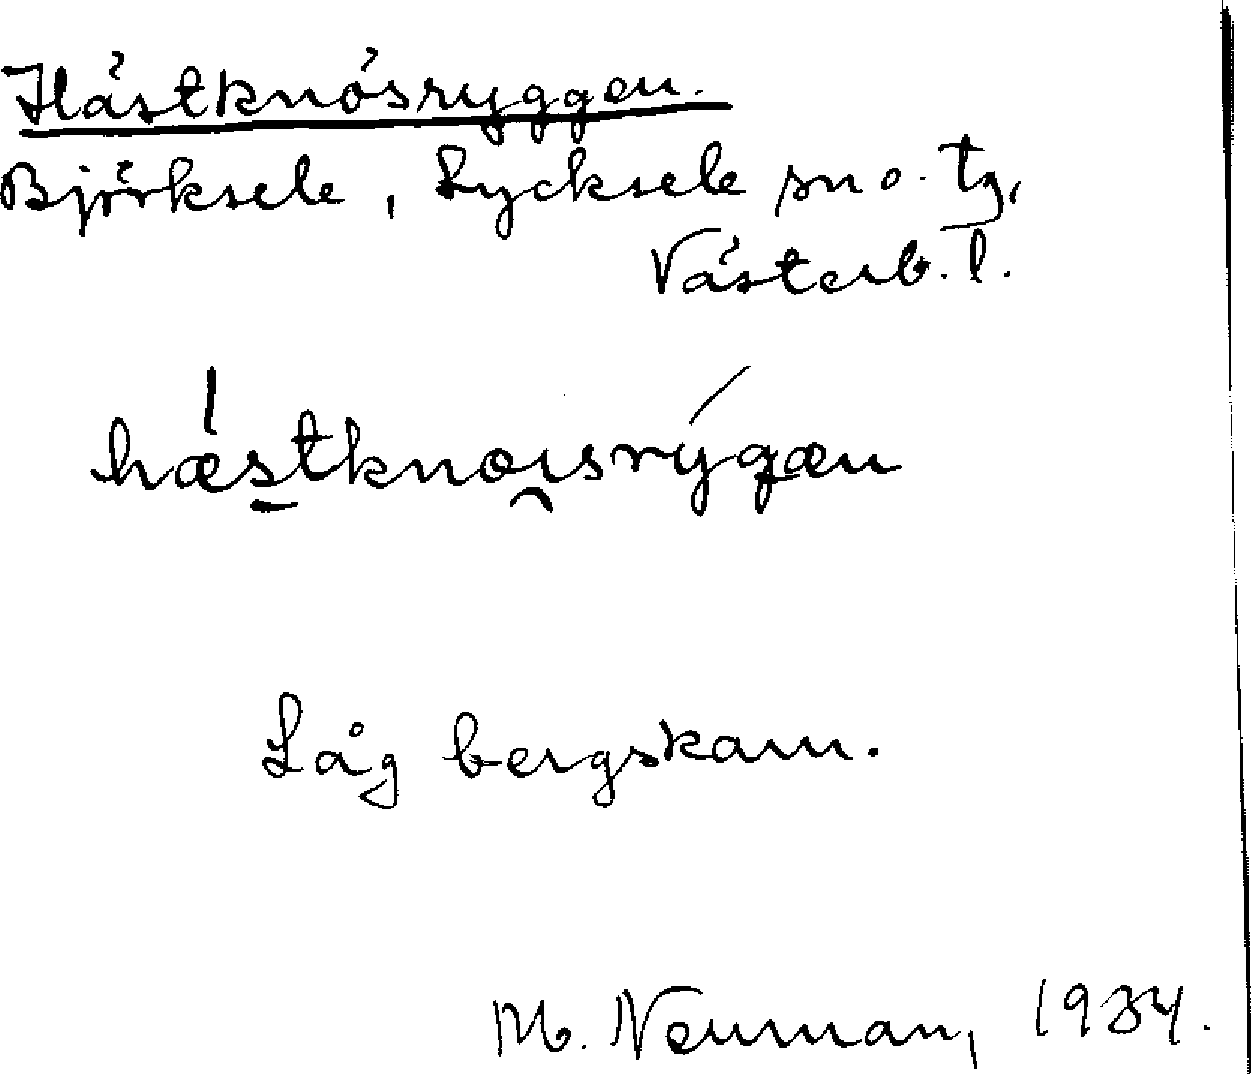 Hästknösryggen.
Björksele, Lycksele sn o. tg,
Västerb. l.
hæstknoısrýgæn
Låg bergskam.
M. Neuman, 1934.